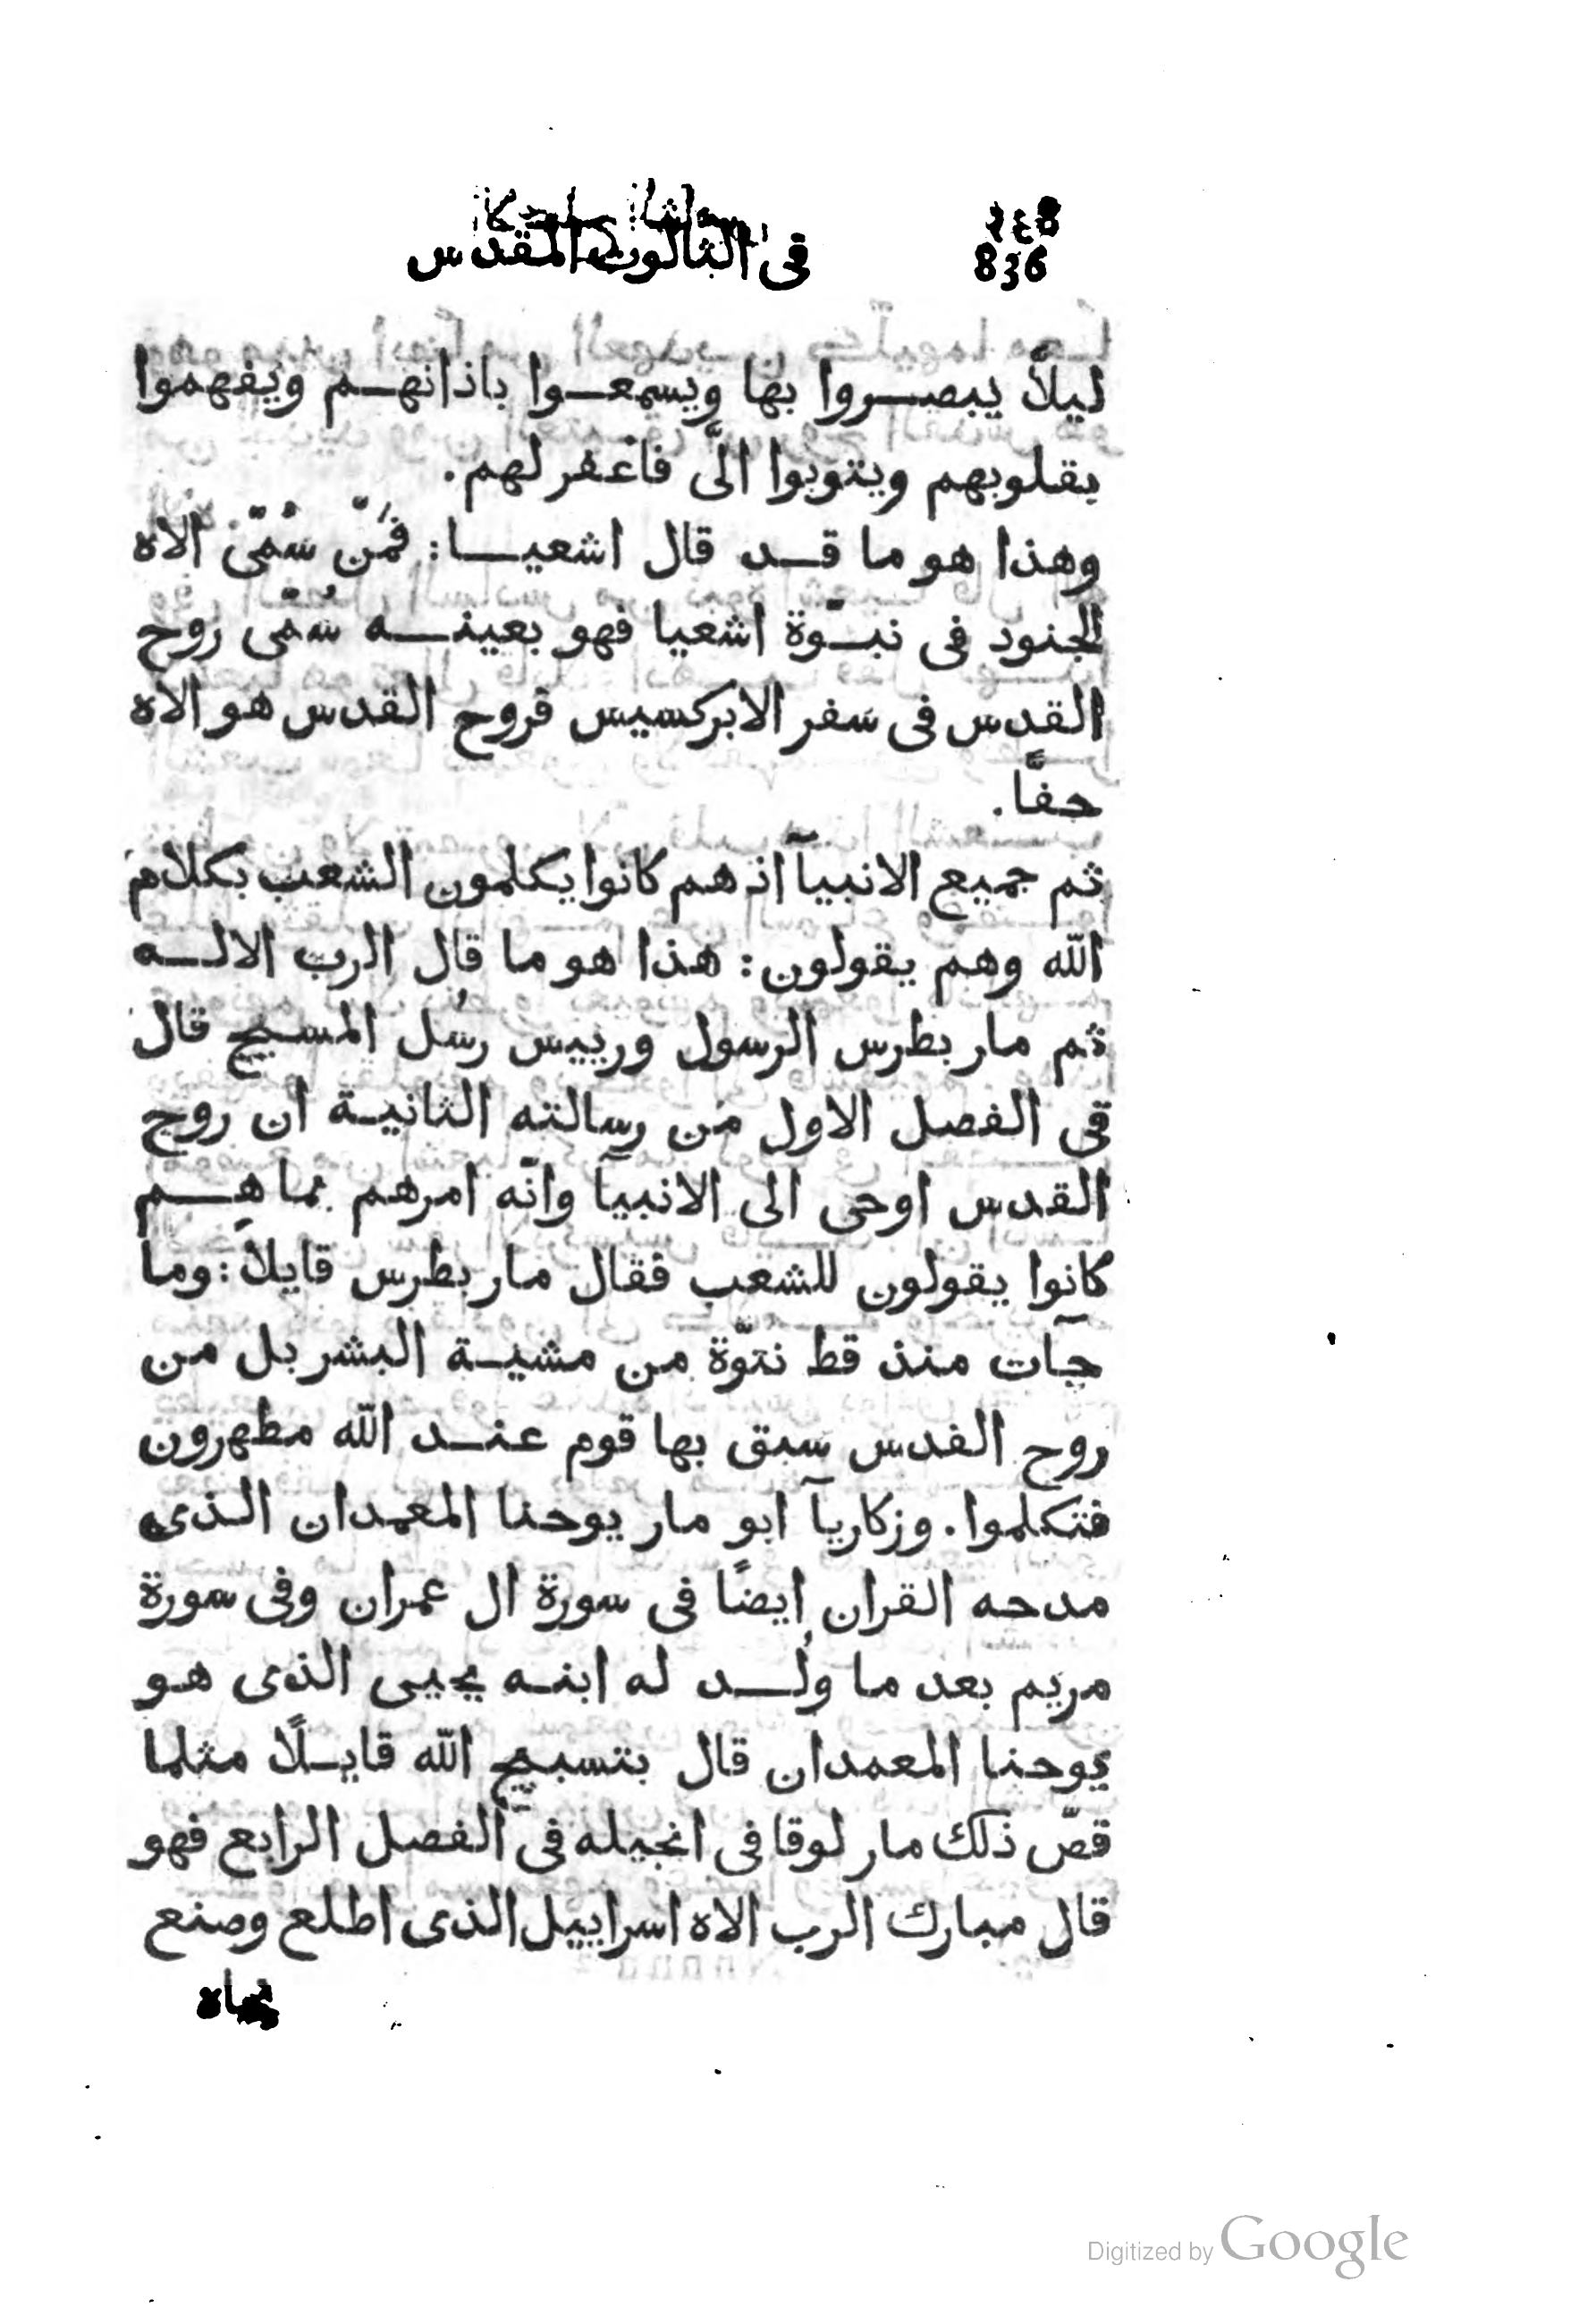 836
فى الثالوث المقدس
ليلاً يبصروا بها ويسمعوا باذانهم ويفهموا
بقلوبهم ويتوبوا الىَّ فاغفر لهم.
وهذا هو ما قد قال اشعيا: فمَنّ سُمّى الاه
الجنود فى نبوّة اشعيا فهو بعينه سُمّى روح
القدس فى سفر الابركسيس فروح القدس هو الاه
حقًّا.
ثم جميع الانبيآ اذ هم كانوا يكلمون الشعب بكلام
الله وهم يقولون: هذا هو ما قال الرب الاله
ثم مار بطرس الرسول ورييس رسُل المسيح قال
فى الفصل الاول من رسالته الثانية ان روح
القدس اوحى الى الانبيآ وانّه امرهم بما هِم
كانوا يقولون للشعب فقال مار بطرس قايلاً: وما
جآت منذ قط نتوّة من مشية البشر بل من
روح القدس سبق بها قوم عند الله مطهرون
فتكلموا. وزكاريآ ابو مار يوحنا المعمدان الذى
مدحه القران ايضًا فى سورة ال عمران وفى سورة
مريم بعد ما وُلد له ابنه يحيى الذى هو
يوحنا المعمدان قال بتسبيح الله قايلًا مثلما
قصّ ذلك مار لوقا فى انجيله فى الفصل الرابع فهو
قال مبارك الرب الاه اسراييل الذى اطلع وصنع
نجاه
Digitized by Google